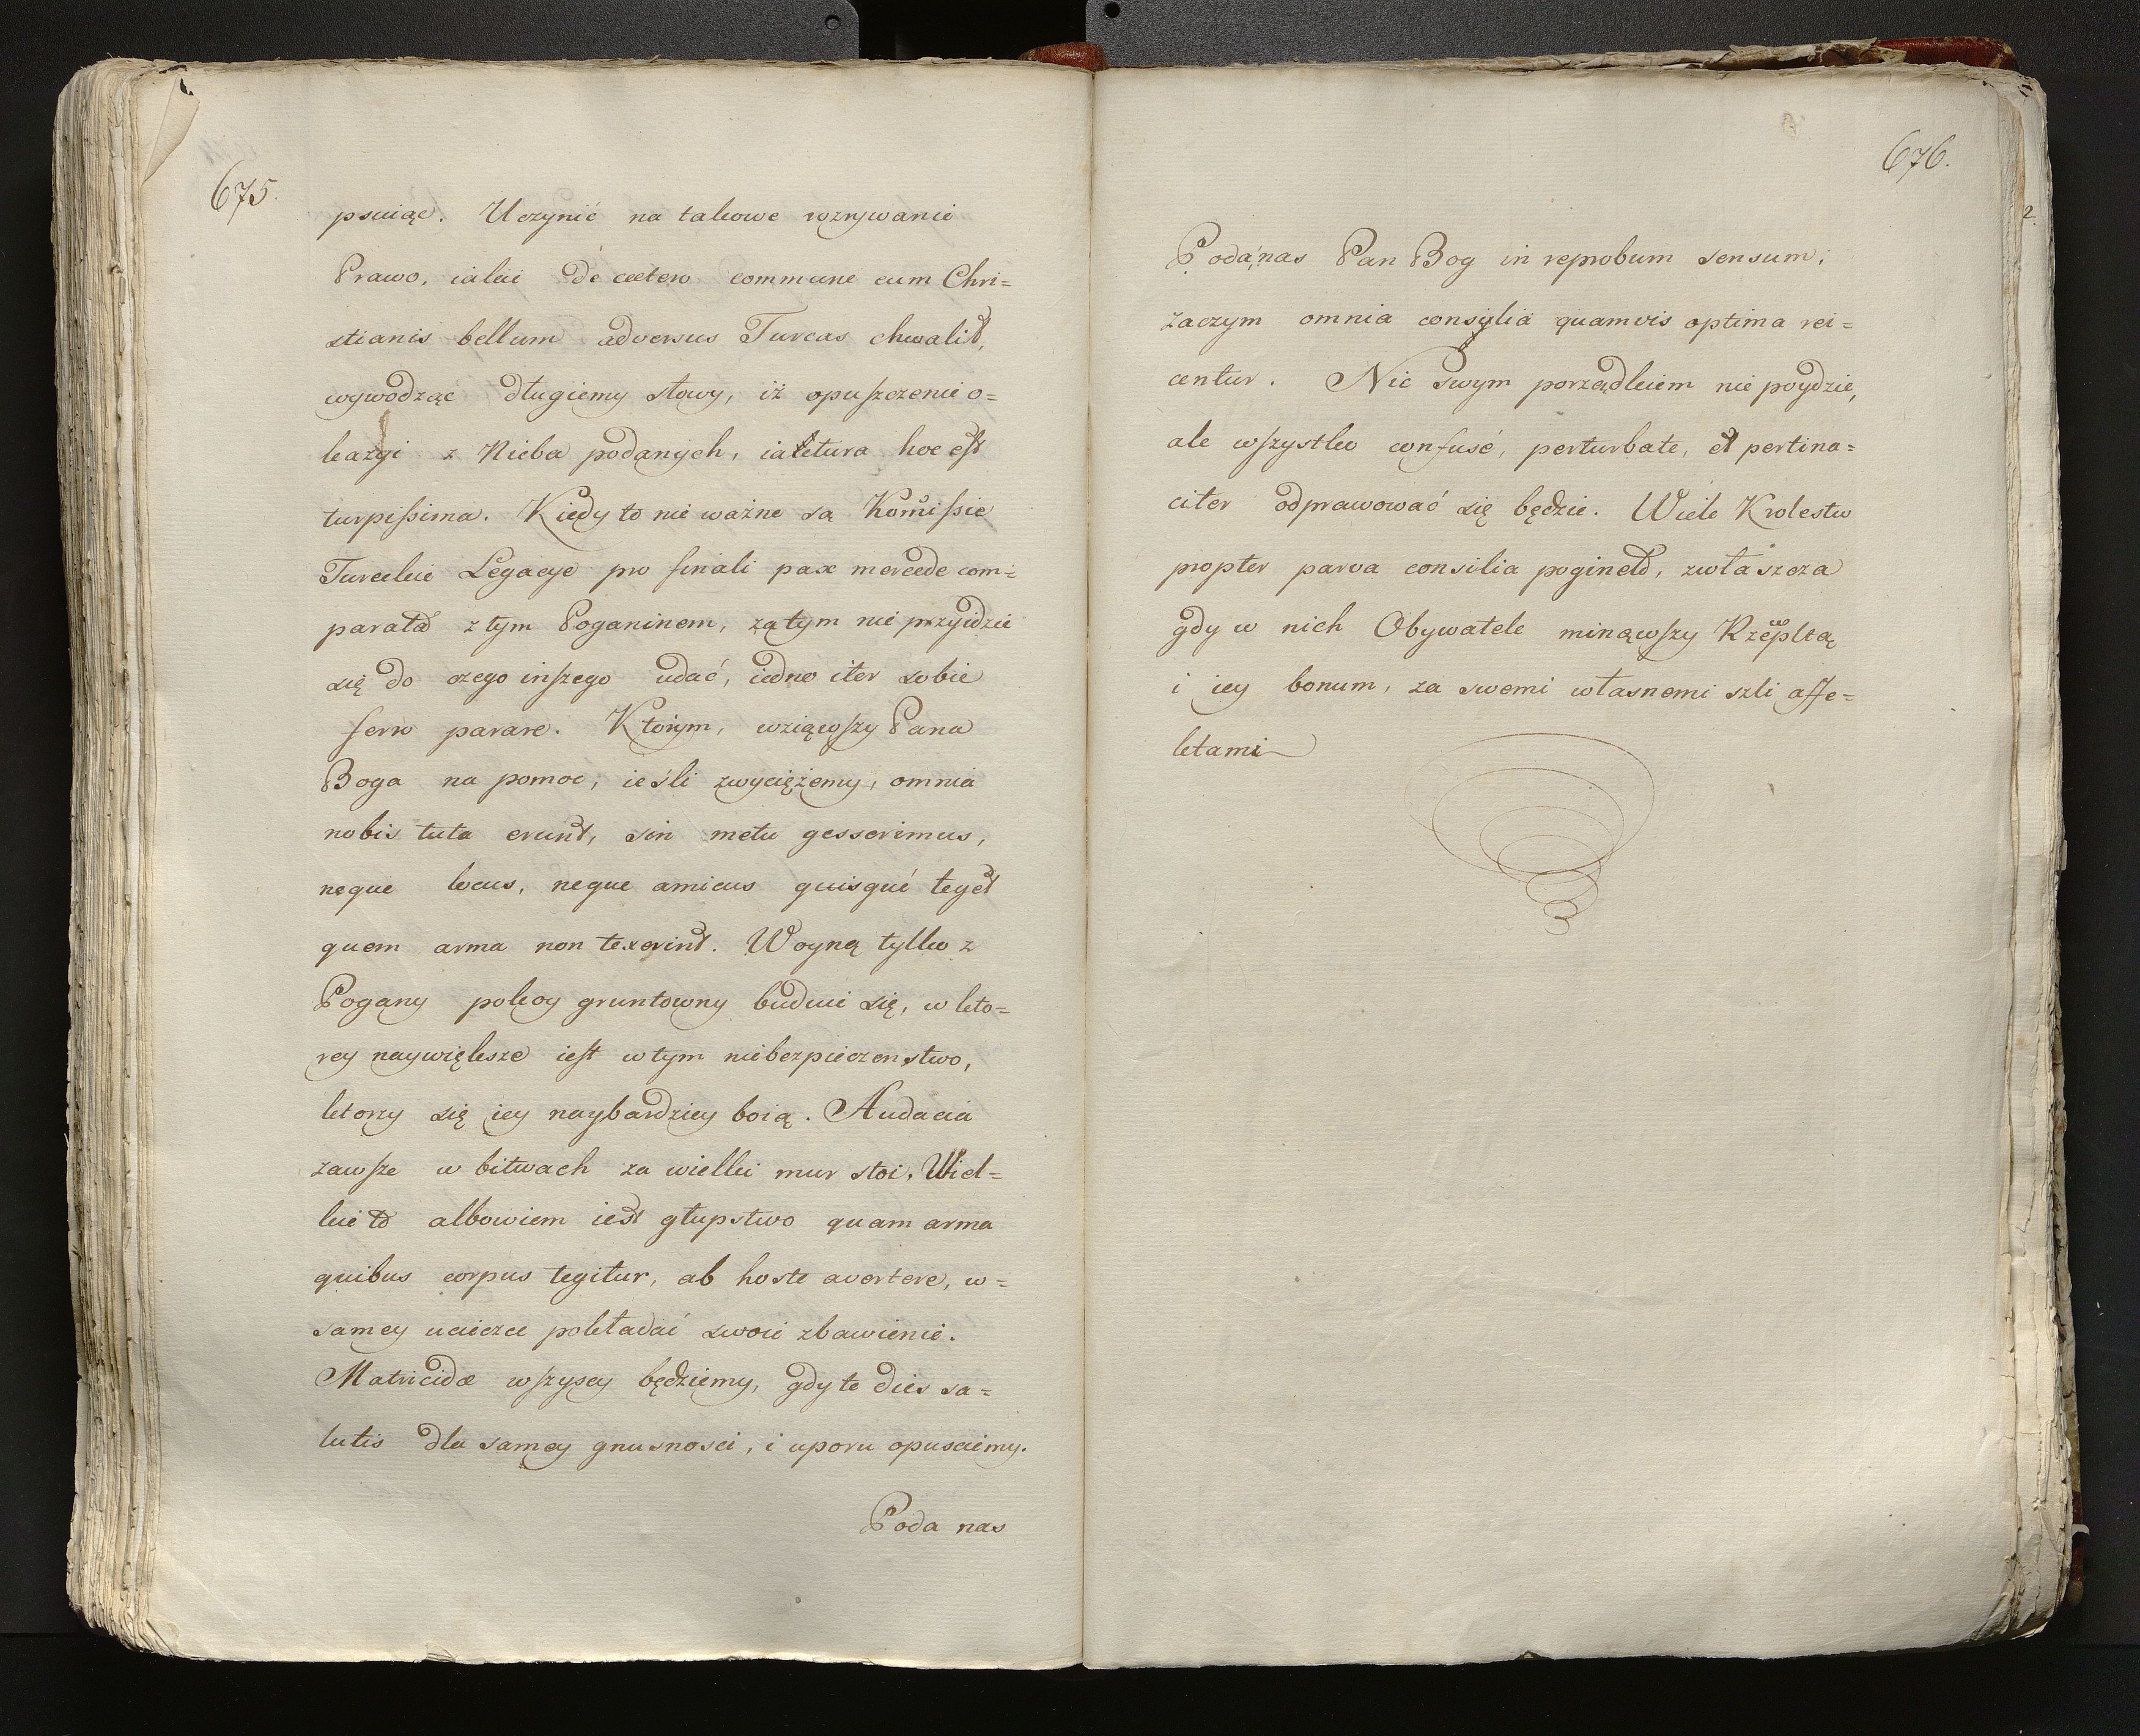 675.
psuiąc. Uczynić na takowe rozrywanie
Prawo, iakie de cætero commune cum Chri=
stianis bellum adversus Turcas chwalić,
wywodząc długiemy słowy, iż opuszczenie o=
kazyi z Nieba podanych, iaktura hoc est
turpissima. Kiedy to nie ważne są Komissie
Tureckie Legacye pro finali pax mercede com=
parata z tym Poganinem, zatym nie przyidzie
się do czego inszego udać, iedno iter sobie
ferro parare. Ktorym, wziąwszy Pana
Boga na pomoc, ieśli zwyciężemy, omnia
nobis tuta erunt, sin metu gesserimus,
neque locus, neque amicus quisque teget
quem arma non texerint. Woyną tylko z
Pogany pokoy gruntowny buduie się, w kto=
rey naywiększe iest w tym niebezpieczenstwo,
ktorzy się iey naybardziey boią. Audacia
zawsze w bitwach za wielki mur stoi. Wiel=
kie to albowiem iest głupstwo quam arma
quibus corpus tegitur, ab hoste avertere, w=
samey ucieczce pokładać swoie zbawienie.
Matricidæ wszyscy będziemy, gdy te dies sa=
lutis dla samey gnusnosci, i uporu opuscimy.
Poda nas
676.
2
Poda nas Pan Bog in reprobum sensum;
zaczym omnia consylia quamvis optima rei=
centur. Nic swym porządkiem nie poydzie,
ale wszystko confuse, perturbate, et pertina=
citer odprawować się będzie. Wiele Krolestw
propter parva consilia poginęło, zwłaszcza
gdy w nich Obywatele minąwszy Rzepltą
i iey bonum, za swemi własnemi szli affe=
ktami